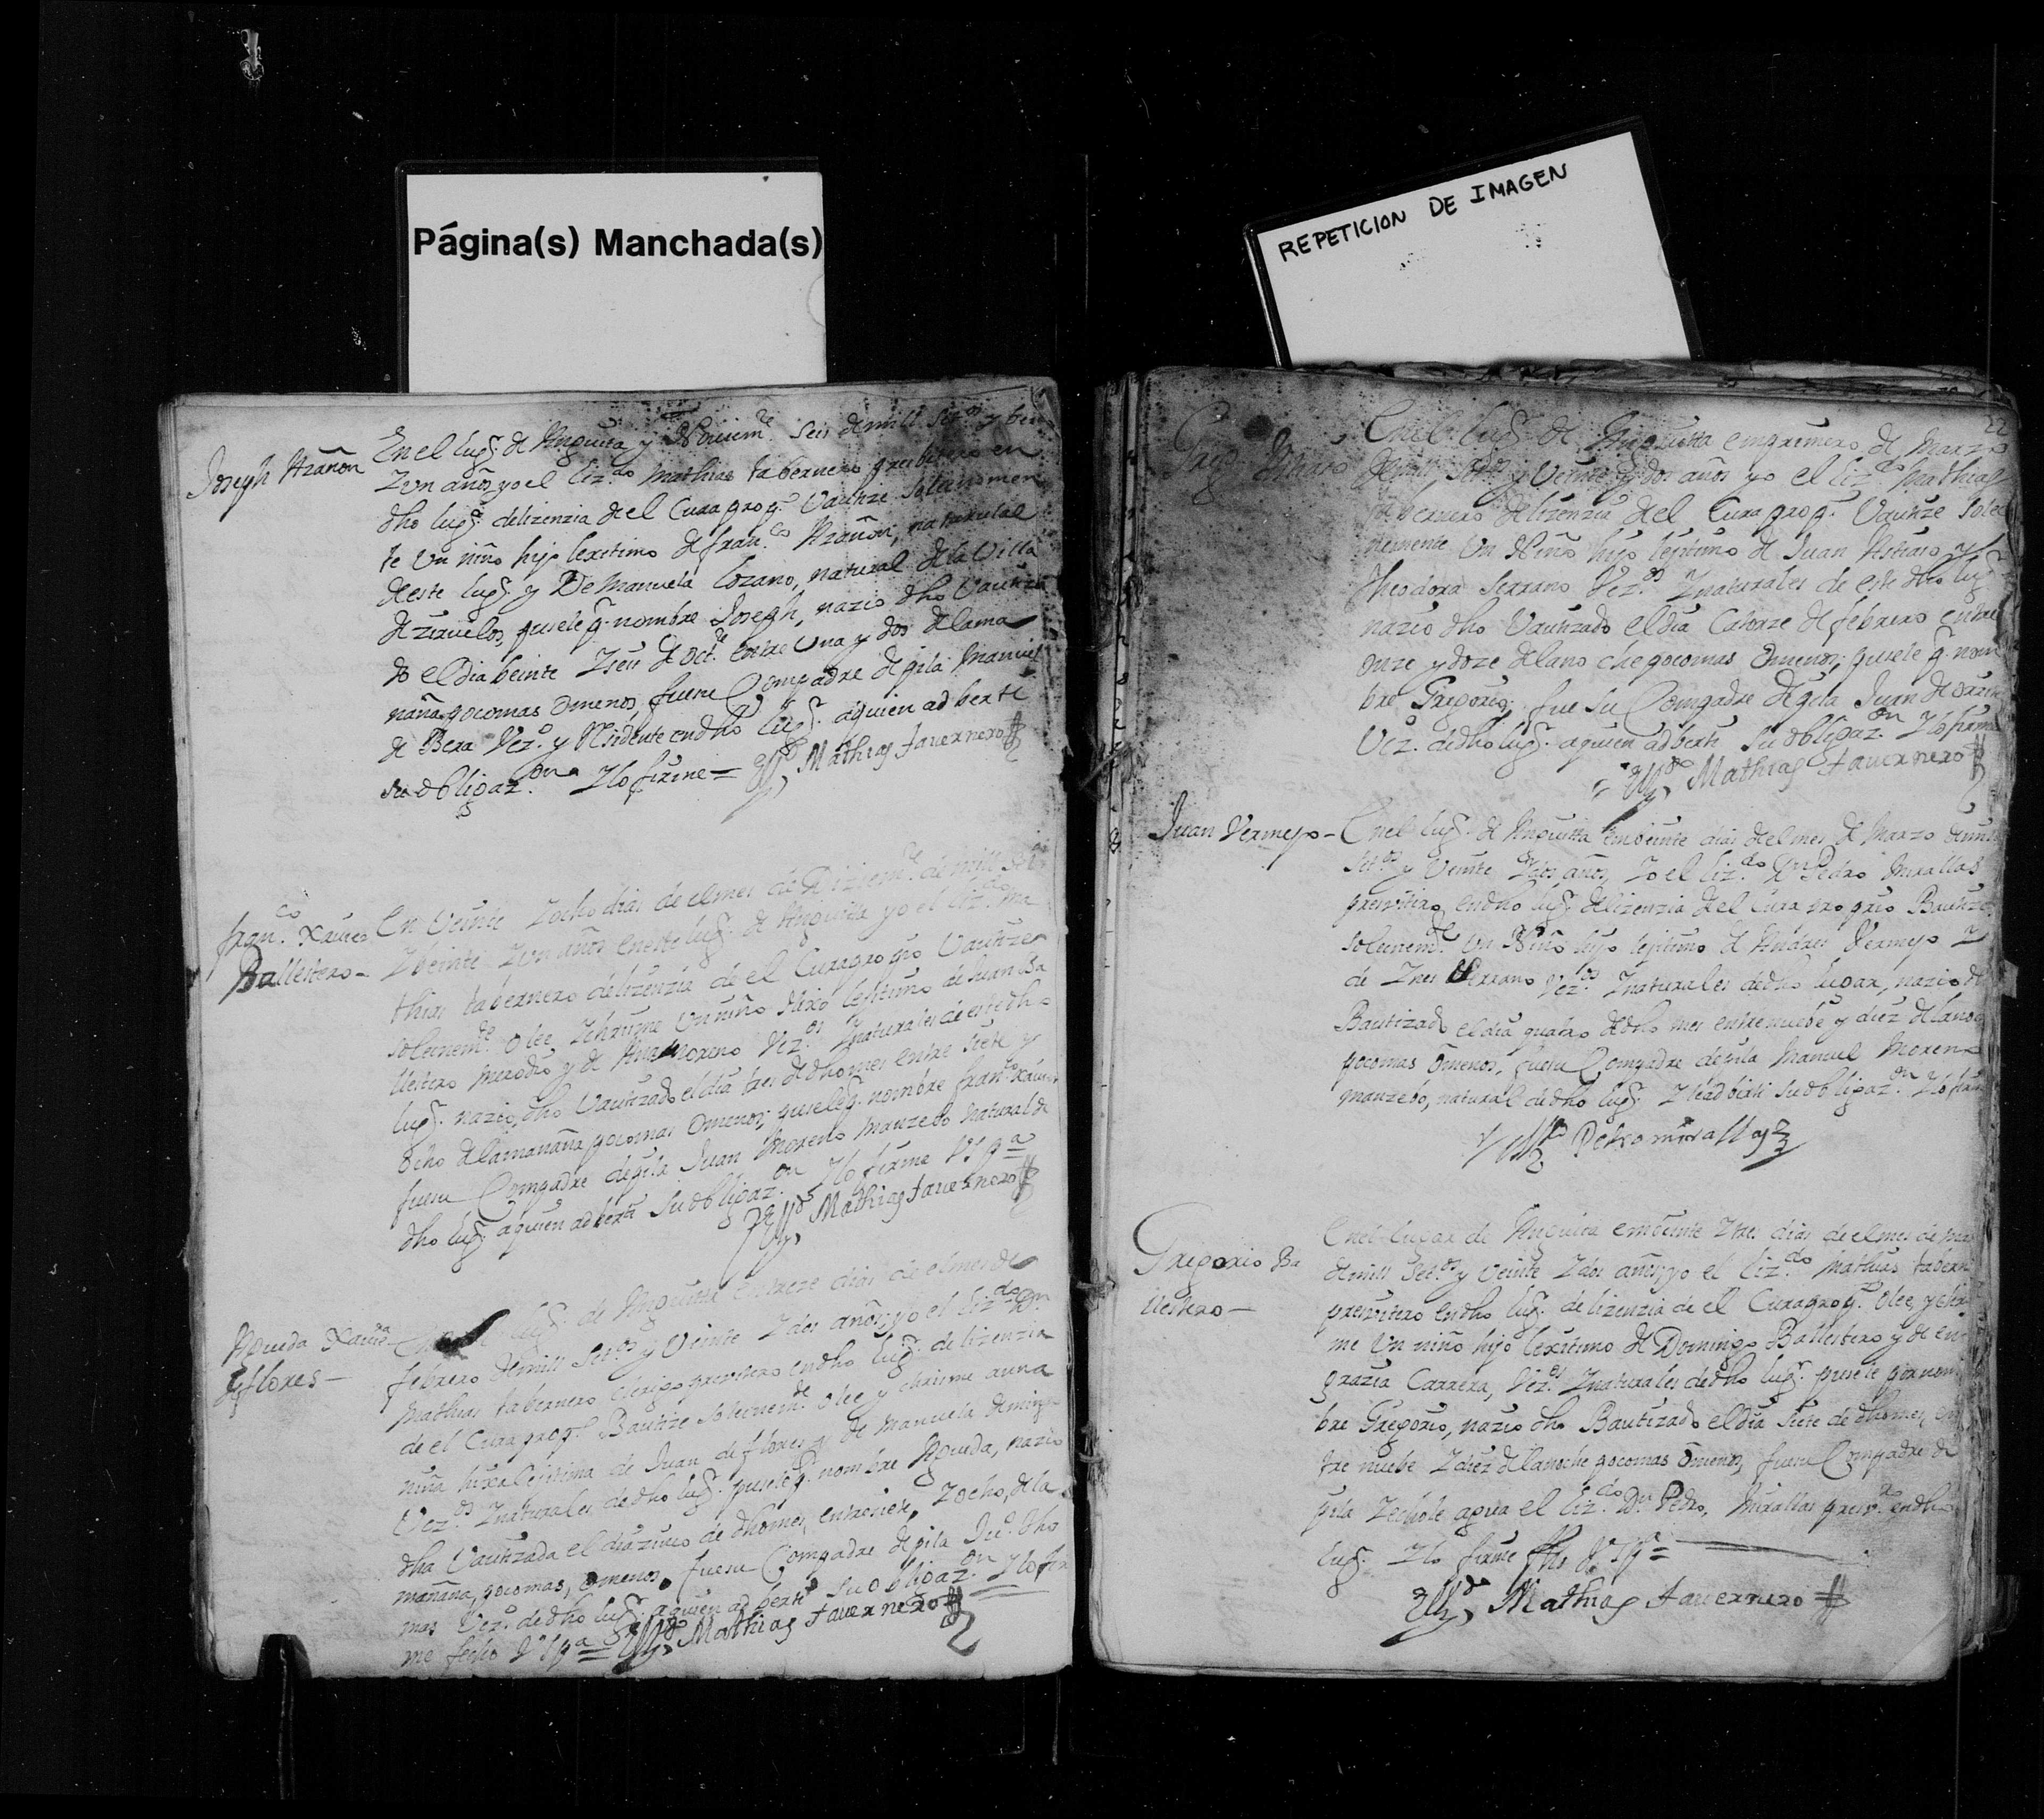 Página(s) Manchada(s)
REPETICION DE IMAGEN
Joseph Arañon
En el lugr de Anguita y Noviemre seis de mill setos y bein
Zun años yo el Lizdo Mathias tabernero presbitero en
dho lugr de lizenzia de el Cura propo Vautize solenomen
te un niño hijo lexitimo de franco Arañon, natural
de este lugr y De Manuela Lozano, natural de la Villa
de ziruelos, pusele pr nombre Joseph, nazio dho Vautiza
do el dia beinte Zseis de octre entre una y dos de la ma
ñana poco mas Omenos, fuesu Compadre de pila Manuel
de Bera Vezo y Residente en dho lugr aquien adberti
su obligazon Ylo firme =
Lizdo Mathias Tavernero
franco Xavier
Ballestero -
En Veinte Zocho dias de el mes de Diziemre de mill setos
Zbeinte Zun años en este lugr de Anguita yo el Lizdo Ma
thias tabernero de lizenzia de el Cura propio Vautize
solenemte olee Zchrisme Un niño hixo lejitimo de Juan Ba
llestero y de Ana Moreno Vezos Znaturales de este dho
lugr nazio, dho Vautizado el dia tres de dho mes entre siete y
ocho de la mañana poco mas Omenos; pusele pr nombre franco Xavier
fuesu Compadre de pila Juan Moreno manzebo natural de
dho lugr aquien adberti su obligazon Ylo firme
Lizdo Mathias Tavernero
Agueda Xaviera
de flores -
lugr de Anguita en treze dias de el mes de
febrero de mill setos y Veinte Zdos años, yo el Lizdo Dn
Mathias tabernero Clerigo presvitero en dho lugr de lizenzia
de el Cura propo Bautize solenemte olee y chrisme auna
niña hixa lejitima de Juan de flores y de Manuela
Vezos Znaturales, de dho lugr pusele pr nombre Agueda, nazio
dha Vautizada el dia zinco de dho mes, entre siete, Zocho, de la
mañana, poco mas, Omenos, fuesu Compadre de pila Juo
mas Vezo de dho lugr aquien adberti su obligazon Ylo fir
me fecho
Lizdo Mathias Tavernero
22
En el lugr de Anguitta en primero de Marzo
de mill setos y Veinte y dos años yo el Lizdo Mathias
tabernero de lizenzia del Cura propo Vautize sole
nemente Un Niño hijo lejitimo de Juan
Theodora Serrano Vezos Znaturales de este dho lugr
nazio dho Vautizado el dia Catorze de febrero entre
onze y doze de la noche poco mas Omenos; pusele pr nom
bre Gregorio; fue su Compadre de pila Juan de
Vezo de dho lugr aquien adberti su obligazon Ylo firme
Lizdo Mathias Tavernero
Juan Vermejo -
En el lugr de Anguitta en veinte dias de el mes de Marzo de mill
setos y Veinte Zdos años, Yo el Lizdo Dn Pedro Mirallas
presvitero en dho lugr de lizenzia de el Cura proprio Bautize
solenemte Un Niño hijo lejitimo de Andres Vermejo Z
de Ines Serrano Vezos Znaturales de dho lugar, nazio dho
Bautizado el dia quatro de dho mes entre nuebe y diez de la noche
poco mas Omenos, fuesu Compadre de pila Manuel Moreno
manzebo, natural de dho lugr Zle adberti su obligazon Ylo firme
Lizdo Pedro mirallas
Gregorio Ba
llestero -
En el Lugar de Anguita en veinte Ztres dias de el mes de mar
de mill setos y Veinte Zdos años; yo el Lizdo Mathias tabern
presvitero en dho lugr de lizenzia de el Cura propo olee, y chris
me Un niño hijo lexitimo de Domingo Ballestero y de en
grazia Carrera, Vezos Znaturales de dho lugr pusele por nom
bre Gregorio, nazio dho Bautizado el dia siete de dho mes en
tre nuebe Zdiez de la noche poco mas Omenos, fuesu Compadre de
pila Zechole agua el Lizdo Dn Pedro, Mirallas presvro en dho
lugr Ylo firme
Lizdo Mathias Tavernero